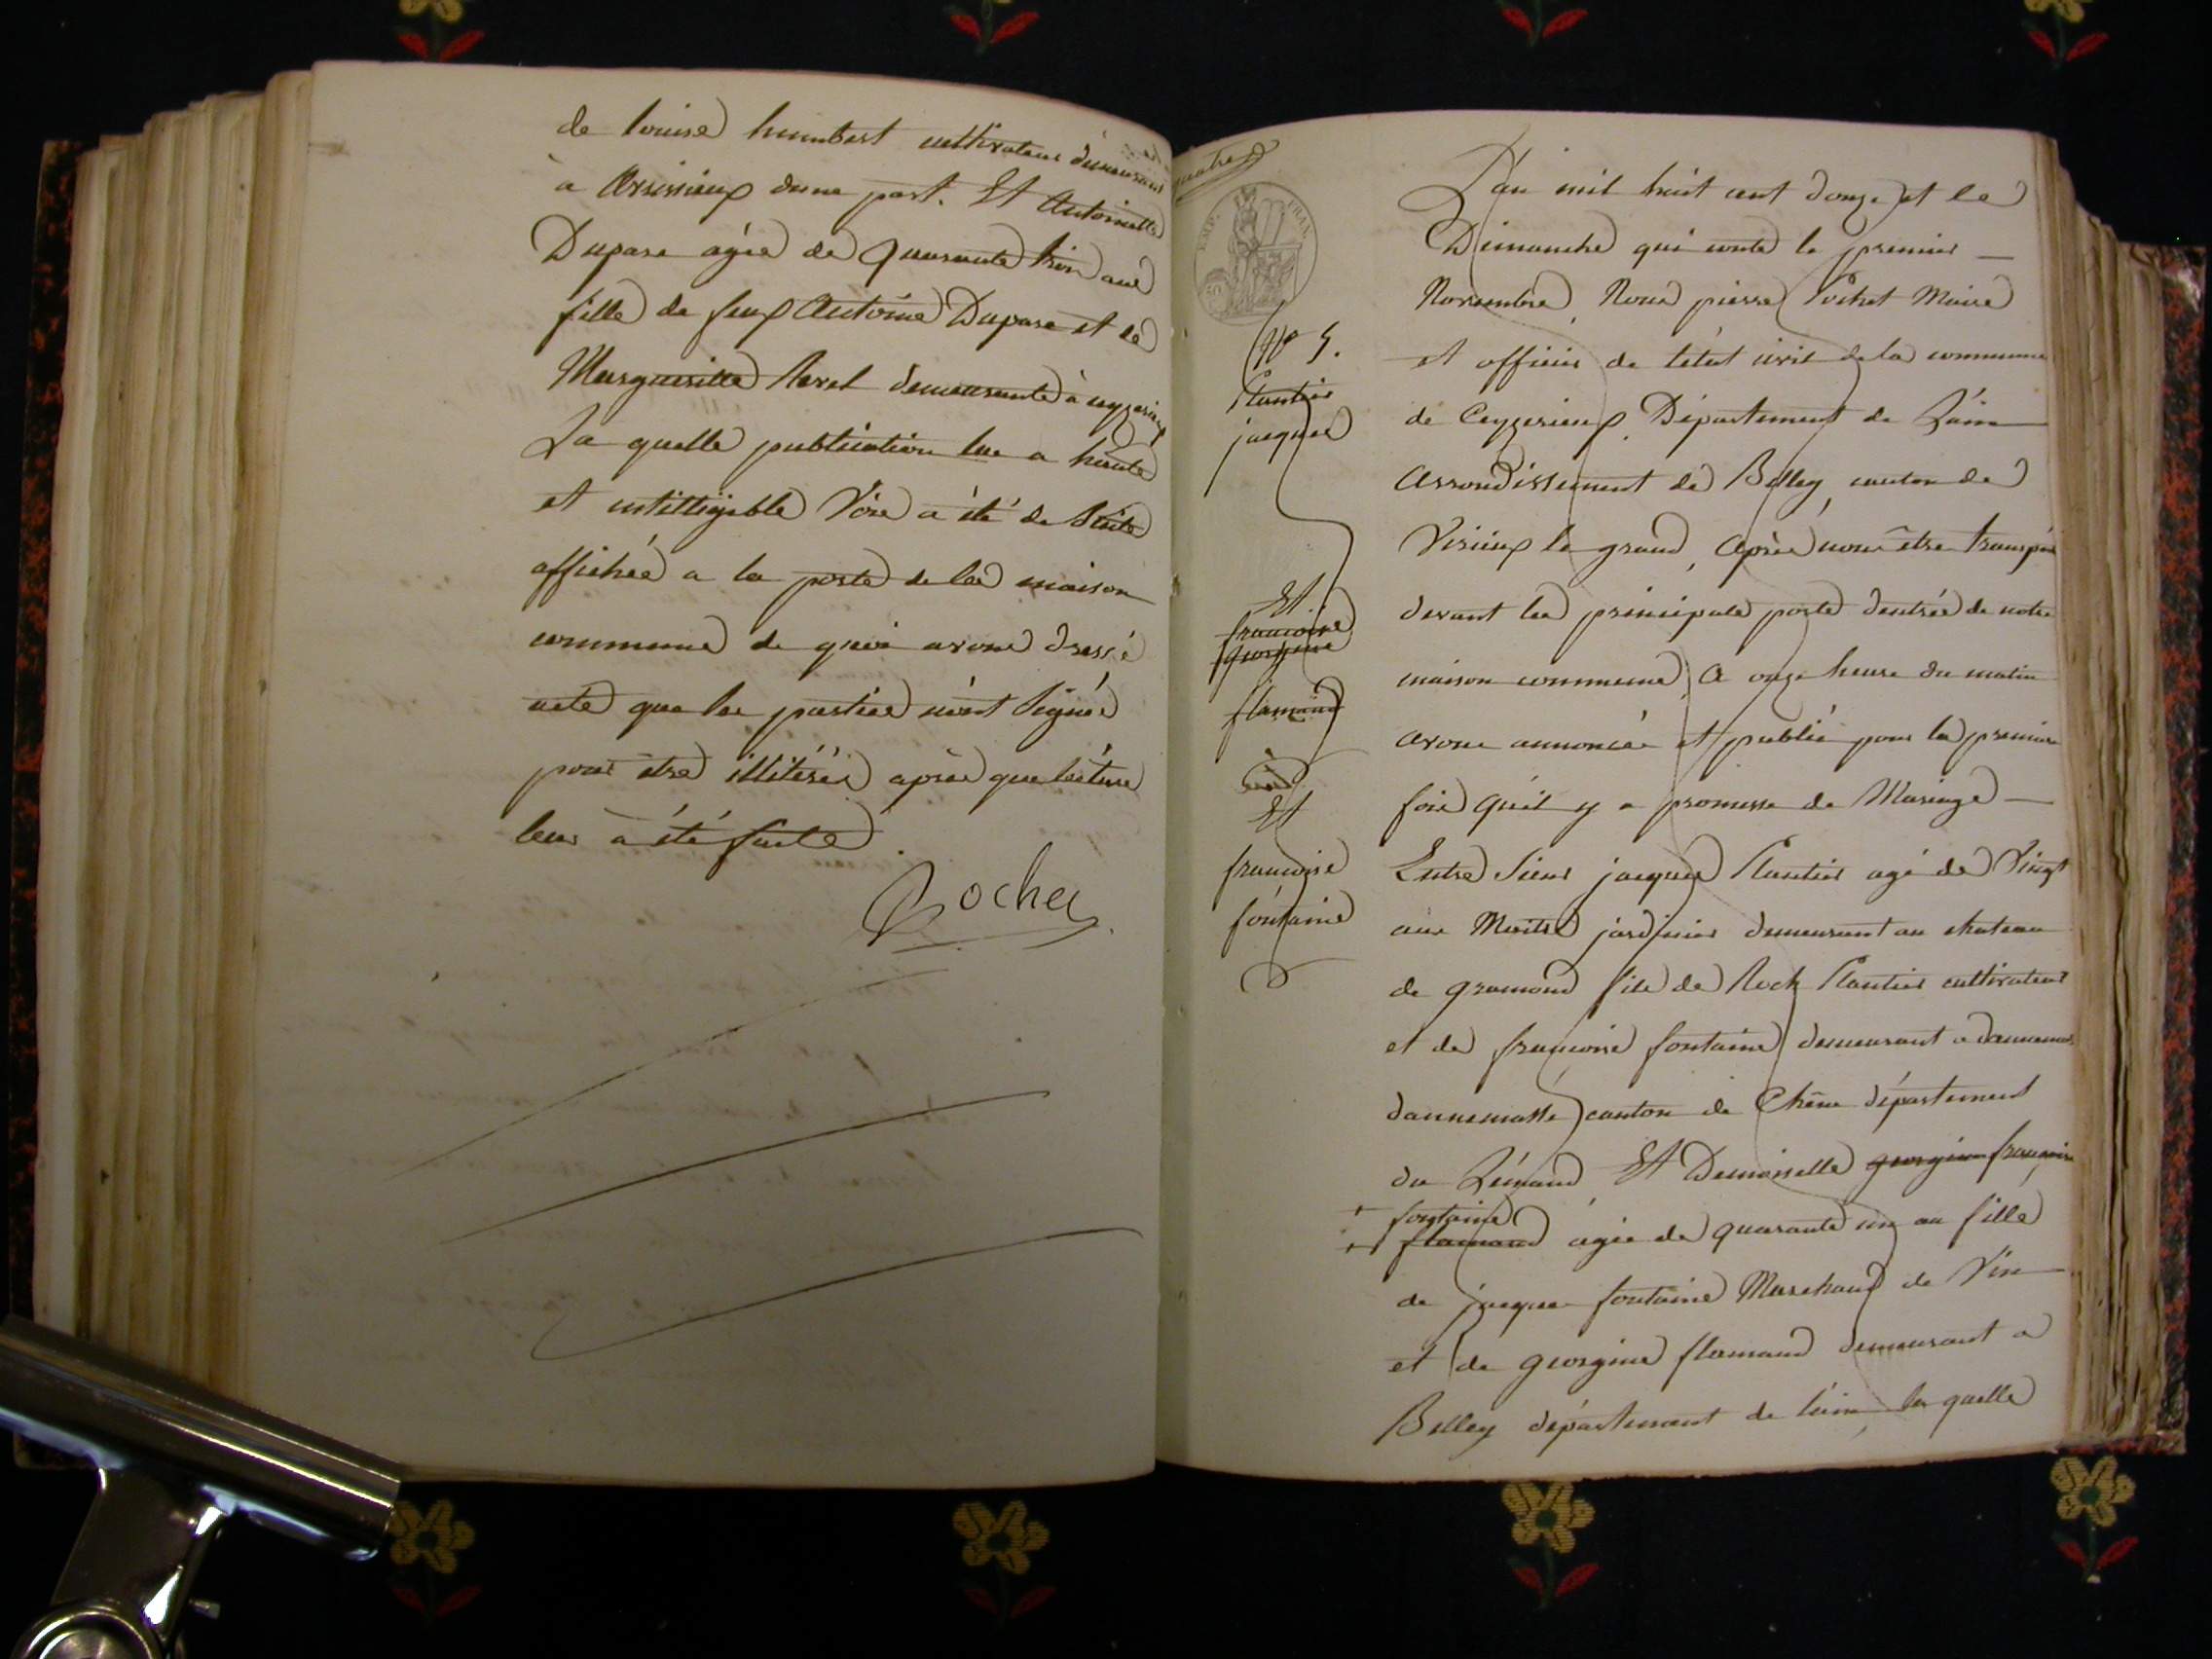 de louise humbert cultivateur demeurant
a Arssissieux dune part. Et Antoinette
Dupare agée de Quarante trois ans
fille de feux Antoine Dupare et de
Margueritte Revel demeurante à ceyzerieux
La quelle publication lue a haute
et intilligible Voix a été de suite
affichée a la porte de la maison
commune de quoi avons dressé
acte que les parties n'ont signé
pour être illitérés après que lécture
leur a été faite.
Rochet
EMP. FRAN.
No 5.
Plantier
jacques
Et
francoise
georgine
flamand
Et
francoise
fontaine
L'an mil huit cent douze et le
Dimanche qui conte le premier
Novembre, Nous pierre Rochet Maire
et officier de l'état civil de la commune
de Ceyzerieux, Département de L'ain
Arrondissement de Belley, canton de
Virieux le grand, Après nous être transporté
devant la principale porte dentrée de notre
maison commune, A onze heure du matin
avons annoncée et publié pour la premiere
fois quil y a promesse de Mariage
Entre Sieur jacques Plantier agé de Vingt
ans Maitre jardinier demeurant au chateau
de gramond fils de Rock Plantier cultivateur
et de francoise fontaine demeurant a
dannemasse canton de Chêne département
du Lémand, Et Demoiselle georgine françoise
fontaine
flamand agée de quarante un an fille
de jacques fontaine Marchand de Vin
et de georgine flamand demeurant a
Belley département de l'ain, la quelle